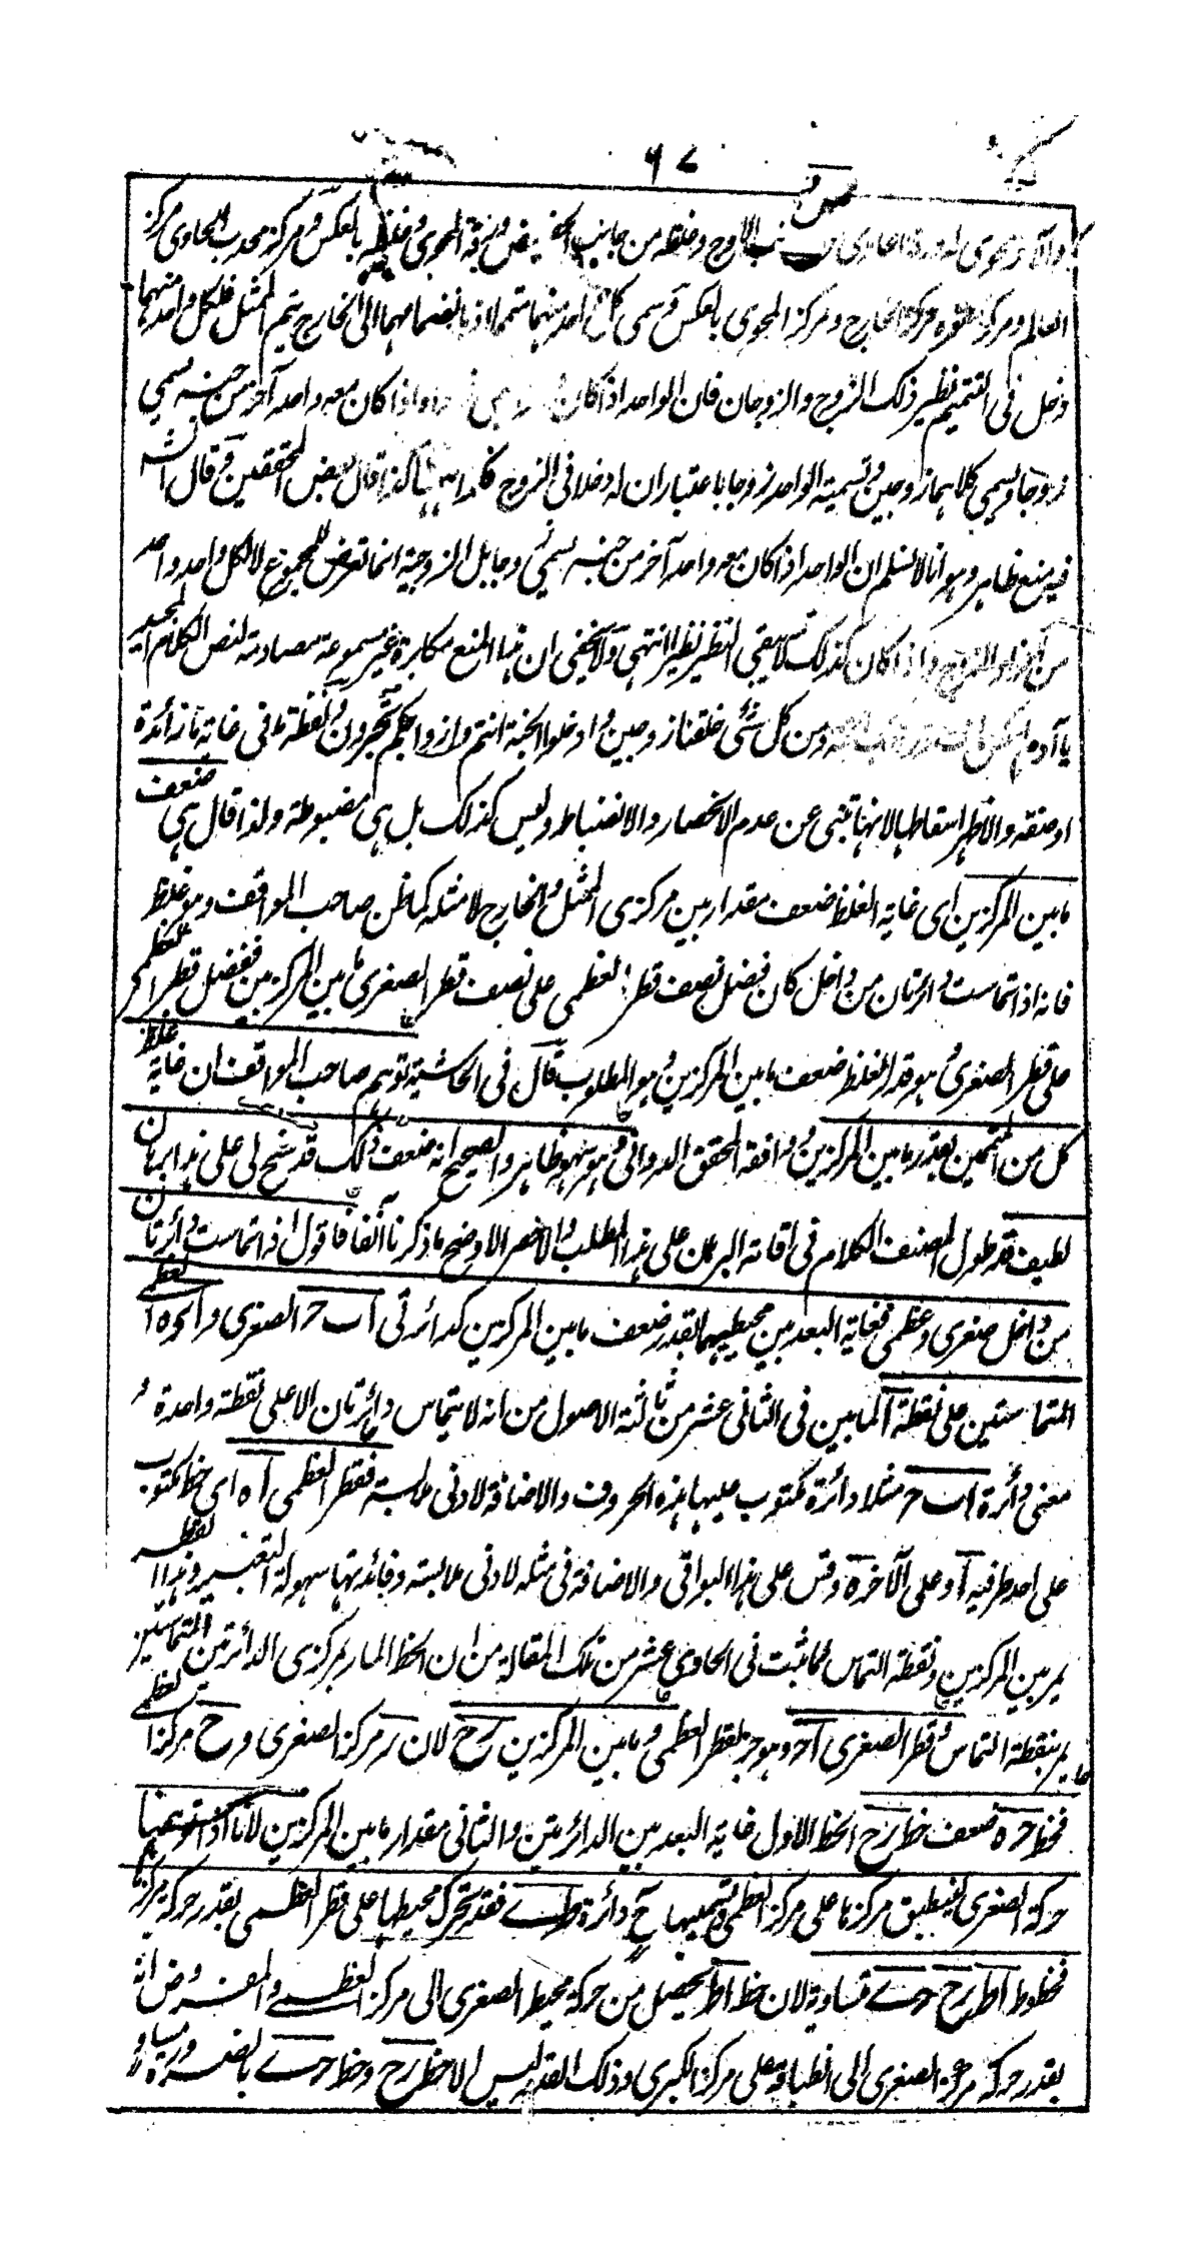 ٩٧
والآخر محوى له ورقة الحاوى من جانب الاوج وغلظه من جانب الحضيض ورقة المحوى وغلظه بالعكس ومركز محدب الحاوى مركز
العالم ومركز مقعره مركز الخارج ومركز المحوى بالعكس وسمى كل واحد منهما متمما اذ بانضمامهما الى الخارج يتم الممثل فلكل واحد منهما
دخل فى التتميم نظير ذلك الزوج والزوجان فان الواحد اذا كان واذا كان معه واحد آخر من جنسه يسمى
زوجا ويسمى كلاهما زوجين وتسمية الواحد زوجا باعتبار ان له دخلا فى الزوج كذا قال بعض المحققين وقال انه
فيه منع ظاهر وهو انا لا نسلم ان الواحد اذا كان معه واحد آخر من جنسه يسمى زوجا بل الزوجية انما تعرض للمجموع لا لكل واحد واحد
من اجزاء الزوج واذا كان كذلك لا يبقى النظير نظيرا انتهى ولا يخفى ان هذا المنع مكابرة غير مسموعة مصادمة لنص الكلام المجيد
يا آدم اسكن انت وزوجك الجنة ومن كل شئ خلقنا زوجين وادخلوا الجنة انتم وازواجكم تحبرون ولفظة ما فى غاية ما زائدة
او صفة والاظهر اسقاطها لانها تنبى عن عدم الانحصار والانضباط وليس كذلك بل هى مضبوطة ولذا قال هى ضعف
ما بين المركزين اى غاية الغلظ ضعف مقدار بين مركزى الممثل والخارج لا مثله كما ظن صاحب المواقف وهو غلط
فانه اذا تماست دائرتان من داخل كان فضل نصف قطر العظمى على نصف قطر الصغرى ما بين المركزين ففضل قطر العظمى
على قطر الصغرى وهو قدر الغلظ ضعف ما بين المركزين وهو المطلوب قال فى الحاشية توهم صاحب المواقف ان غاية غلظ
كل من المتممين بقدر ما بين المركزين ووافقه المحقق الدوانى وهو سهو ظاهر والصحيح انه ضعف ذلك قد سنح لى على هذا برهان
لطيف قد طول المصنف الكلام فى اقامة البرهان على هذا المطلب والاخصر الاوضح ما ذكرنا آنفا فاقول اذا تماست دائرتان
من داخل صغرى وعظمى فغاية البعد بين محيطيهما بقدر ضعف ما بين المركزين كدائرتى ا ب ح الصغرى و العظمى
المتماستين على نقطة آ لما بين فى الثانى عشر من ثالثة الاصول من انه لا يتماس دائرتان الا على نقطة واحدة و
معنى دائرة ا ب ح مثلا دائرة مكتوب عليها هذه الحروف والاضافة لادنى ملابسة فقطر العظمى ا ه اى خط مكتوب
على احد طرفيه آ وعلى الآخر ه وقس على هذا البواقى والاضافة فى مثله لادنى ملابسة وفائدتها سهولة التعبير وهذا القطر
يمر بين المركزين ونقطة التماس لما ثبت فى الحادى عشر من تلك المقالة من ان الخط المار بمركزى الدائرتين المتماستين
يمر بنقطة التماس وقطر الصغرى ا ح وهو جزء لقطر العظمى وما بين المركزين ر ح لان ر مركز الصغرى و ح مركز العظمى
فخط ح ه ضعف خط ر ح الخط الاول غاية البعد بين الدائرتين والثانى مقدار ما بين المركزين لانا اذا توهمنا
حركة الصغرى لينطبق مركزها على مركز العظمى وتسميها ح دائرة ط ے فقد تحرك محيطها على قطر العظمى بقدر حركة مركزها
فخطوط ا ط ر ح ح ے متساوية لان خط ا ط يحصل من حركة محيط الصغرى الى مركز العظمى والمفروض انه
بقدر حركة مركز الصغرى الى انطباقه على مركز الكبرى وذلك القدر ليس الا خط ر ح وخط ح ے بالضرورة يساوى